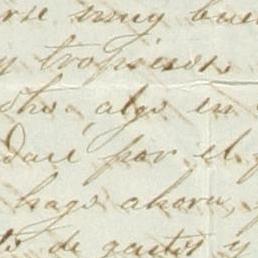 muy bue
y tropiesos.
dho, algo en
dare por el
hago ahora,
de gastos y